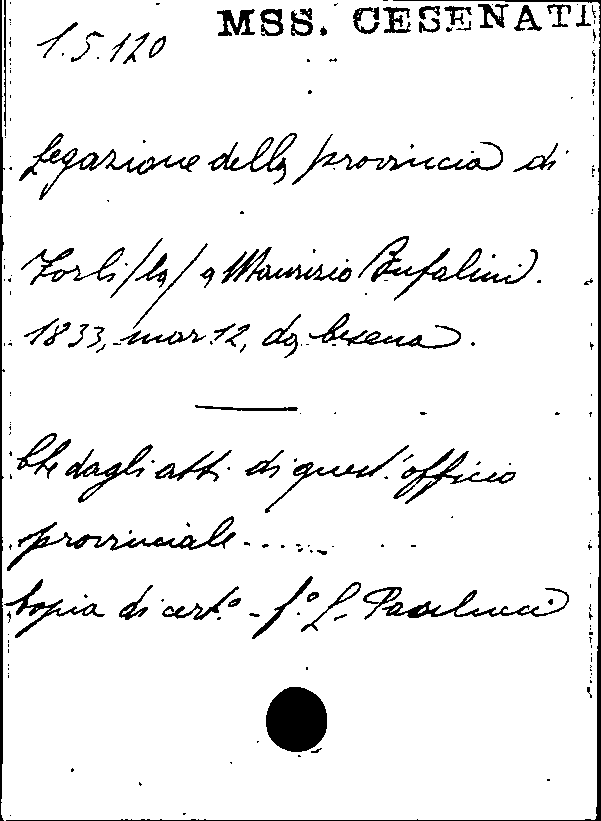 MSS. CESENATI
1.5.120
Legazione della provincia di
Forlì /la/ a Maurizio Bufalini.
1833, mar. 12, da Cesena.
Che dagli atti di quest'officio
provinciale......
Copia di cert.° - f.° L. Paolucci